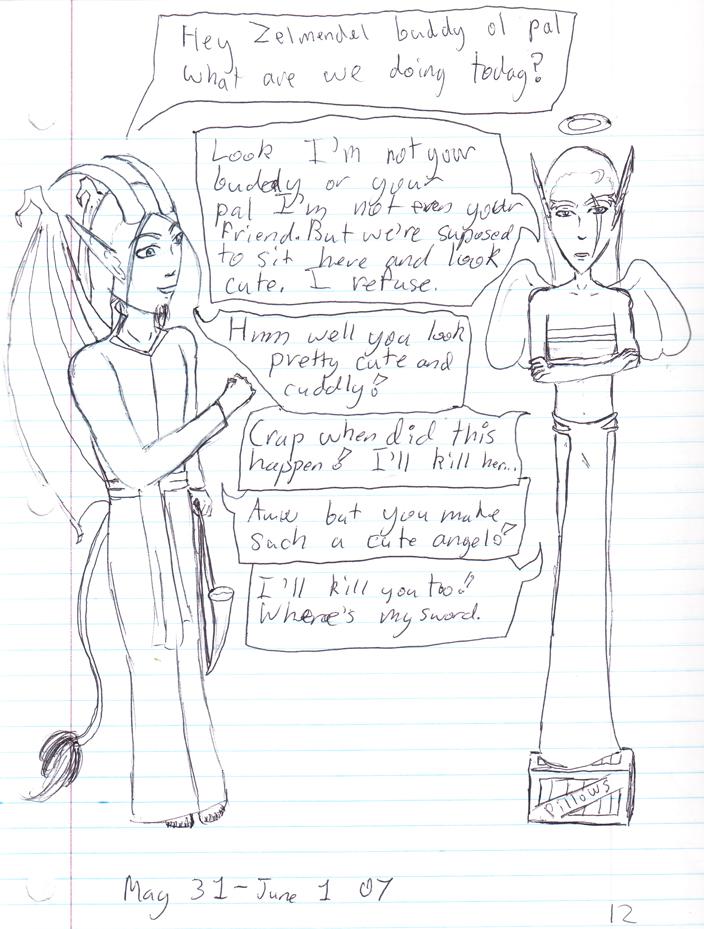 Hey Zelmendel buddy ol pal
what are we doing today?
Look I'm not your
buddy or your
pal I'm not even your
friend. But we're suposed
to sit here and look
cute. I refuse.
Hmm well you look
pretty cute and
cuddly!
Crap when did this
happen! I'll kill her...
Aww but you make
such a cute angel!
I'll kill you too!
Where's my sword.
Pillows
May 31-June 1 07
12